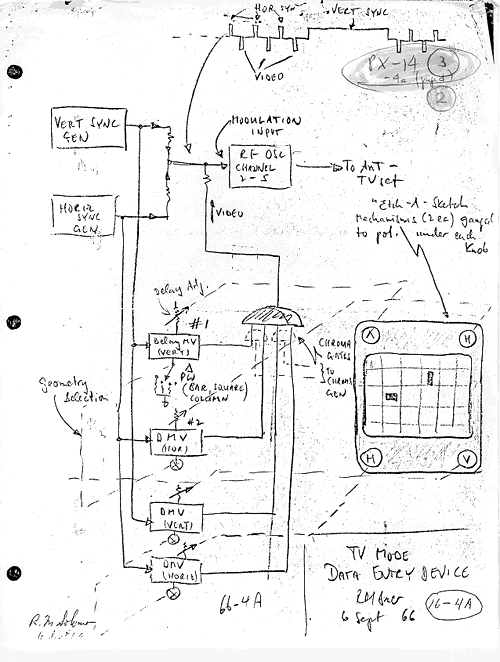 HOR SYNC
VERT SYNC
VIDEO
PX-14 3
-4a
2
VERT SYNC
GEN
MODULATION
INPUT
RF OSC
CHANNEL
2-5
To ANT -
TV set
HORIZ
SYNC
GEN.
VIDEO
"Etch-A-Sketch
Mechanisms (2 ea) ganged
to pot. under each
Knob
Delay Adj.
#1
Delay MV
(VERT)
CHROMA
GATES
TO CHROMA
GEN
X
H
PW
(BAR, SQUARE)
COLUMN
Geometry
Selection
#2
DMV
(HOR)
H
V
DMV
(VERT)
DMV
(HORIZ)
66-4A
TV MODE
DATA ENTRY DEVICE
6 Sept 66
16-4A